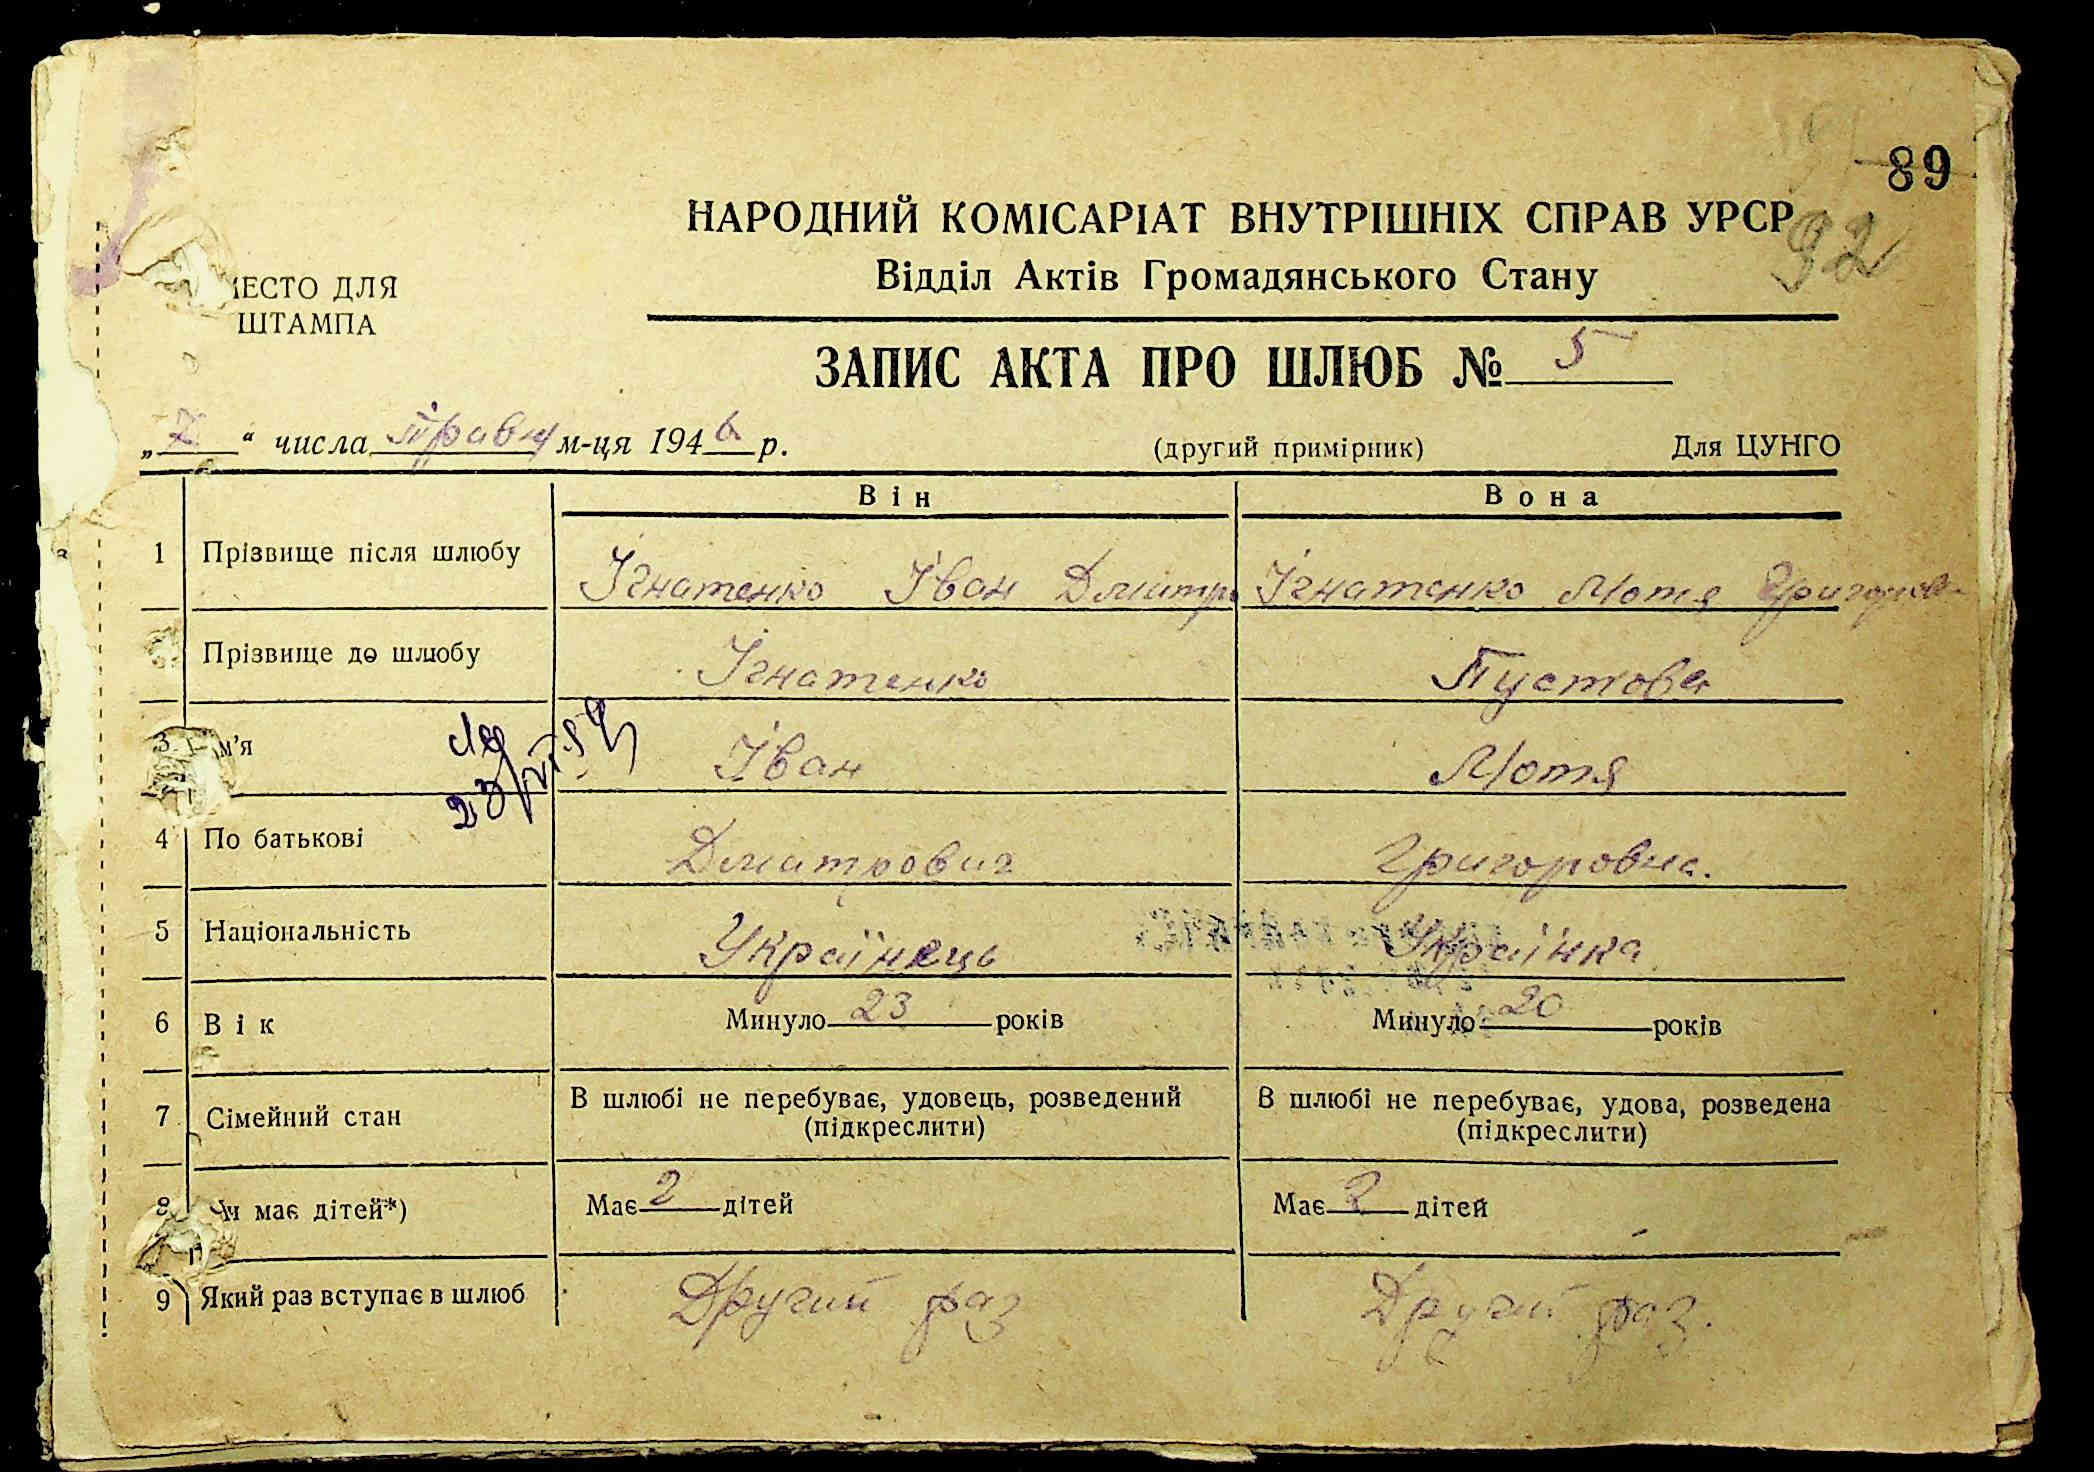 89
НАРОДНИЙ КОМІСАРІАТ ВНУТРІШНІХ СПРАВ УРСР
92
Відділ Актів Громадянського Стану
МЕСТО ДЛЯ
ШТАМПА
ЗАПИС АКТА ПРО ШЛЮБ № 5
„7“ числа травня м-ця 1946 р. (другий примірник) Для ЦУНГО
Він Вона
1 Прізвище після шлюбу Ігнатенко Іван Дмитр Ігнатенко Мотя Григоров
Прізвище до шлюбу Ігнатенко Пустова
3 Ім’я Іван Мотя
4 По батькові Дмитрович Григоровна.
5 Національність Українець Українка
6 Вік Минуло 23 років Минуло 20 років
7 Сімейний стан В шлюбі не перебуває, удовець, розведений (підкреслити) В шлюбі не перебуває, удова, розведена (підкреслити)
8 Чи має дітей*) Має 2 дітей Має 2 дітей
9 Який раз вступає в шлюб Другий раз Другий раз.